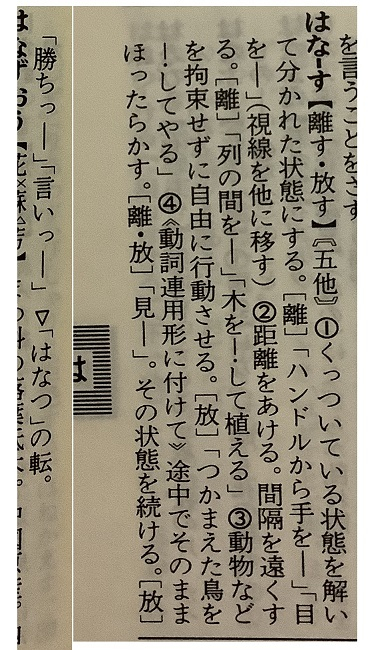 を言うことをさす
はな-す【離す・放す】〘五他〙①くっついている状態を解い
て分かれた状態にする。[離]「ハンドルから手を―」「目
を―」(視線を他に移す) ②距離をあける。間隔を遠くす
る。[離]「列の間を―」「木を―・して植える」③動物など
を拘束せずに自由に行動させる。[放]「つかまえた鳥を
―・してやる」④《動詞連用形に付けて》途中でそのまま
ほったらかす。[離・放]「見―」。その状態を続ける。[放]
は
「勝ちっ―」「言いっ―」▽「はなつ」の転。